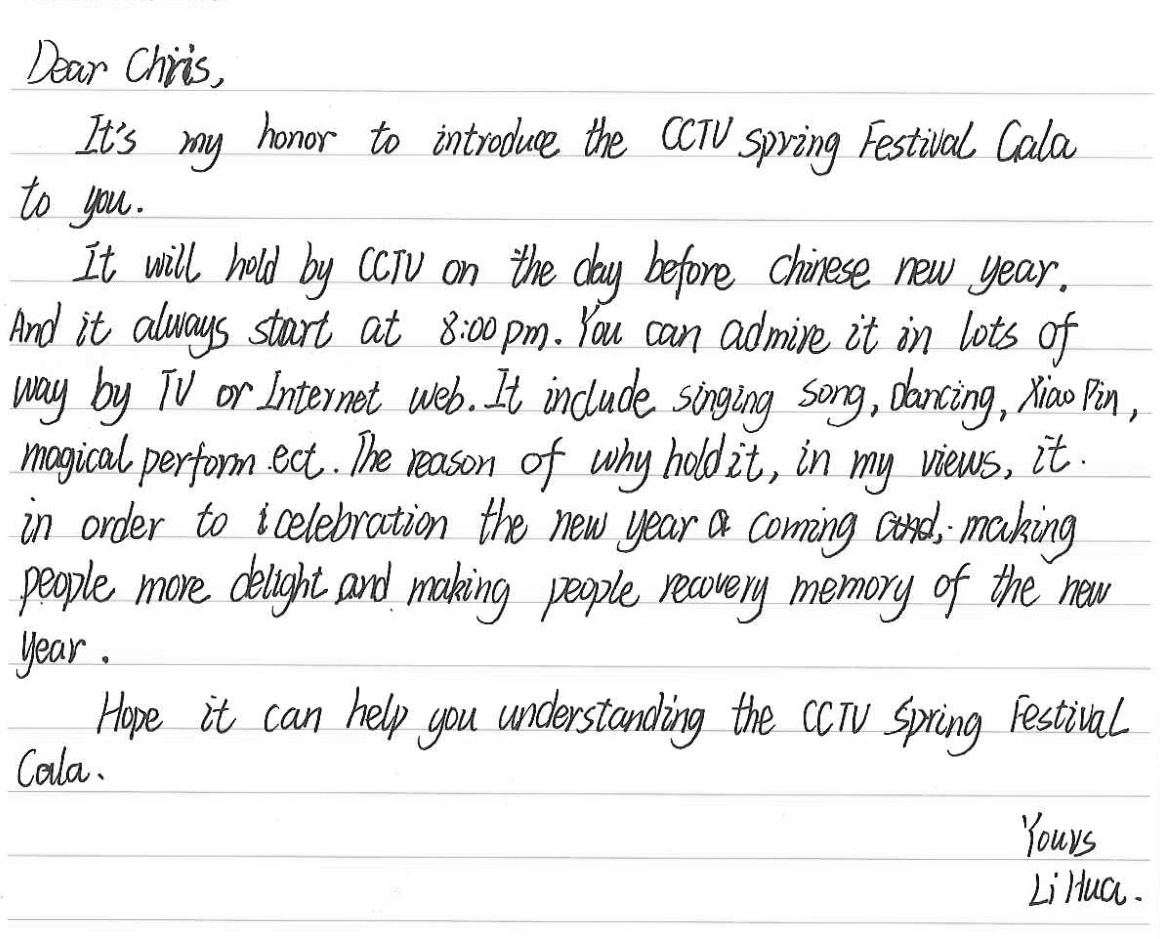 Dear Chris,
It's my honor to introduce the CCTV Spring Festival Gala
to you.
It will hold by CCTV on the day before Chinese new year.
And it always start at 8:00 pm. You can admire it in lots of
way by TV or Internet web. It include singing song, Dancing, Xiao Pin,
magical perform ect. The reason of why hold it, in my views, it.
in order to celebration the new year coming and, making
people more delight and making people recovery memory of the new
year.
Hope it can help you understanding the CCTV Spring Festival
Gala.
Yours
Li Hua.